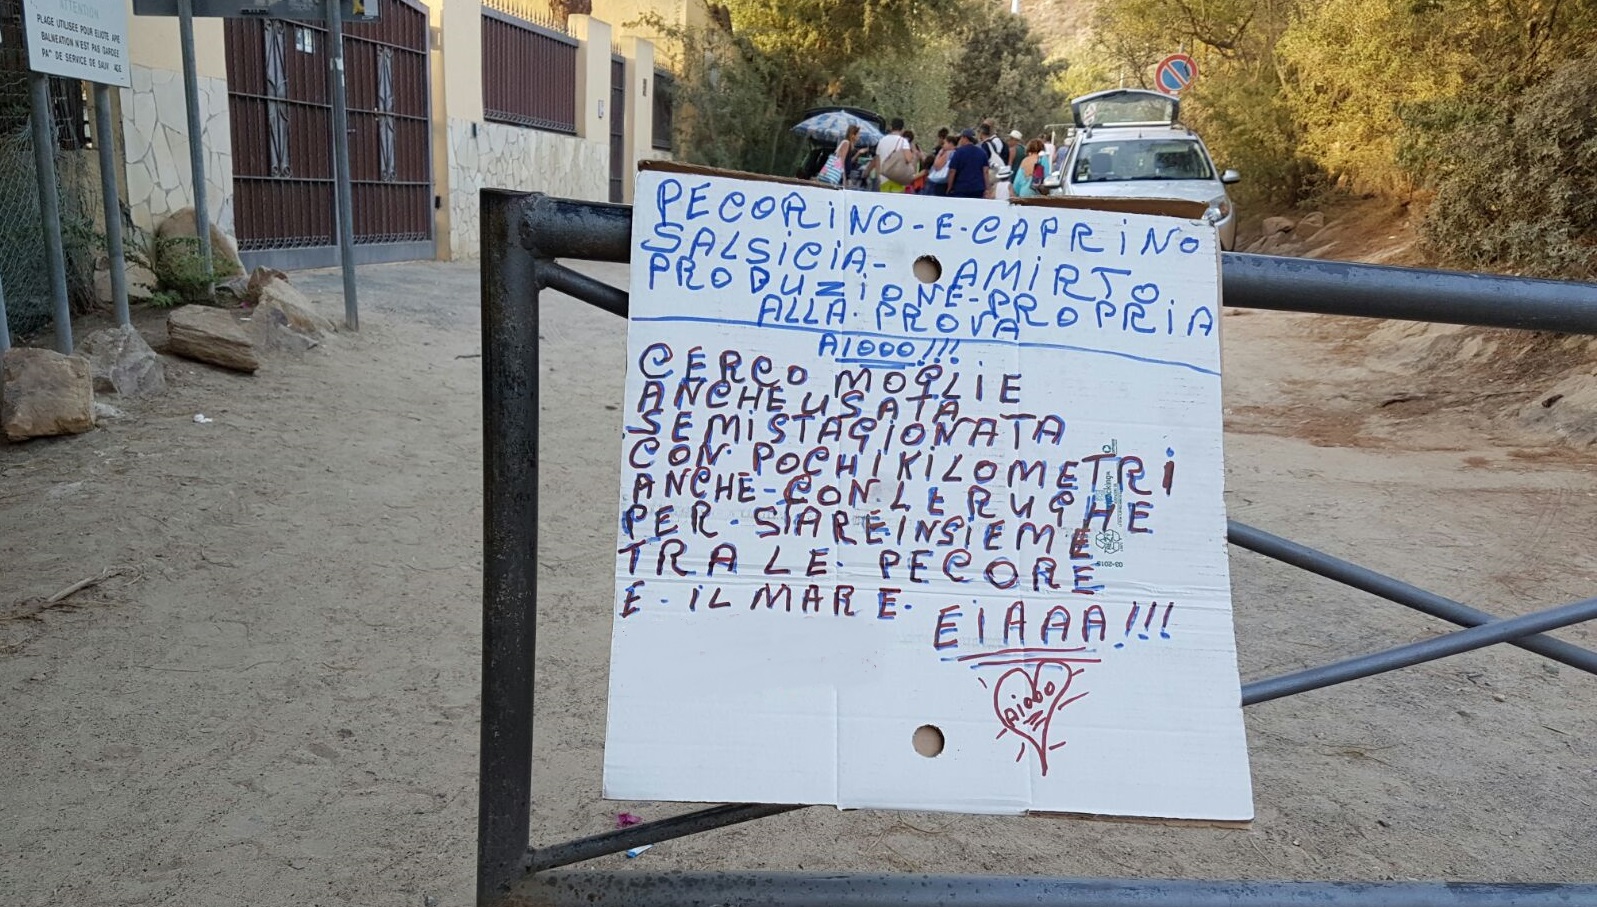 ATTENTION
PLAGE UTILISÉE POUR
BALNEATION N'EST PAS
DE SERVICE DE
PECORiNO-E-CAPRiNO
SALSiCiA- AMiRTO
PRODUZiONE-PROPRiA
ALLA PROVA
AIOOO!!!
CERCO MOGLIE
ANCHE USATA
SEMiSTAGIONATA
CON POCHI KILOMETRi
ANCHE-CON LE RUGHE
PER STARE INSIEME
TRA LE PECORE
E. IL MARE.
EiAAA!!!
Aiooo
03-2015